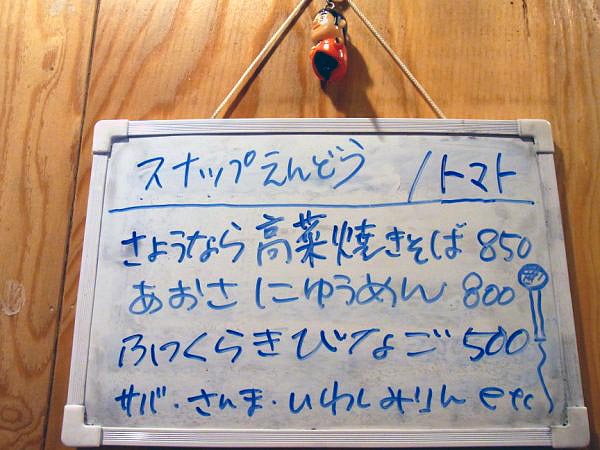 スナップえんどう / トマト
さようなら高菜焼きそば 850
あおさにゅうめん 800
ふっくらきびなご 500
サバ・さんま・いわしみりん etc